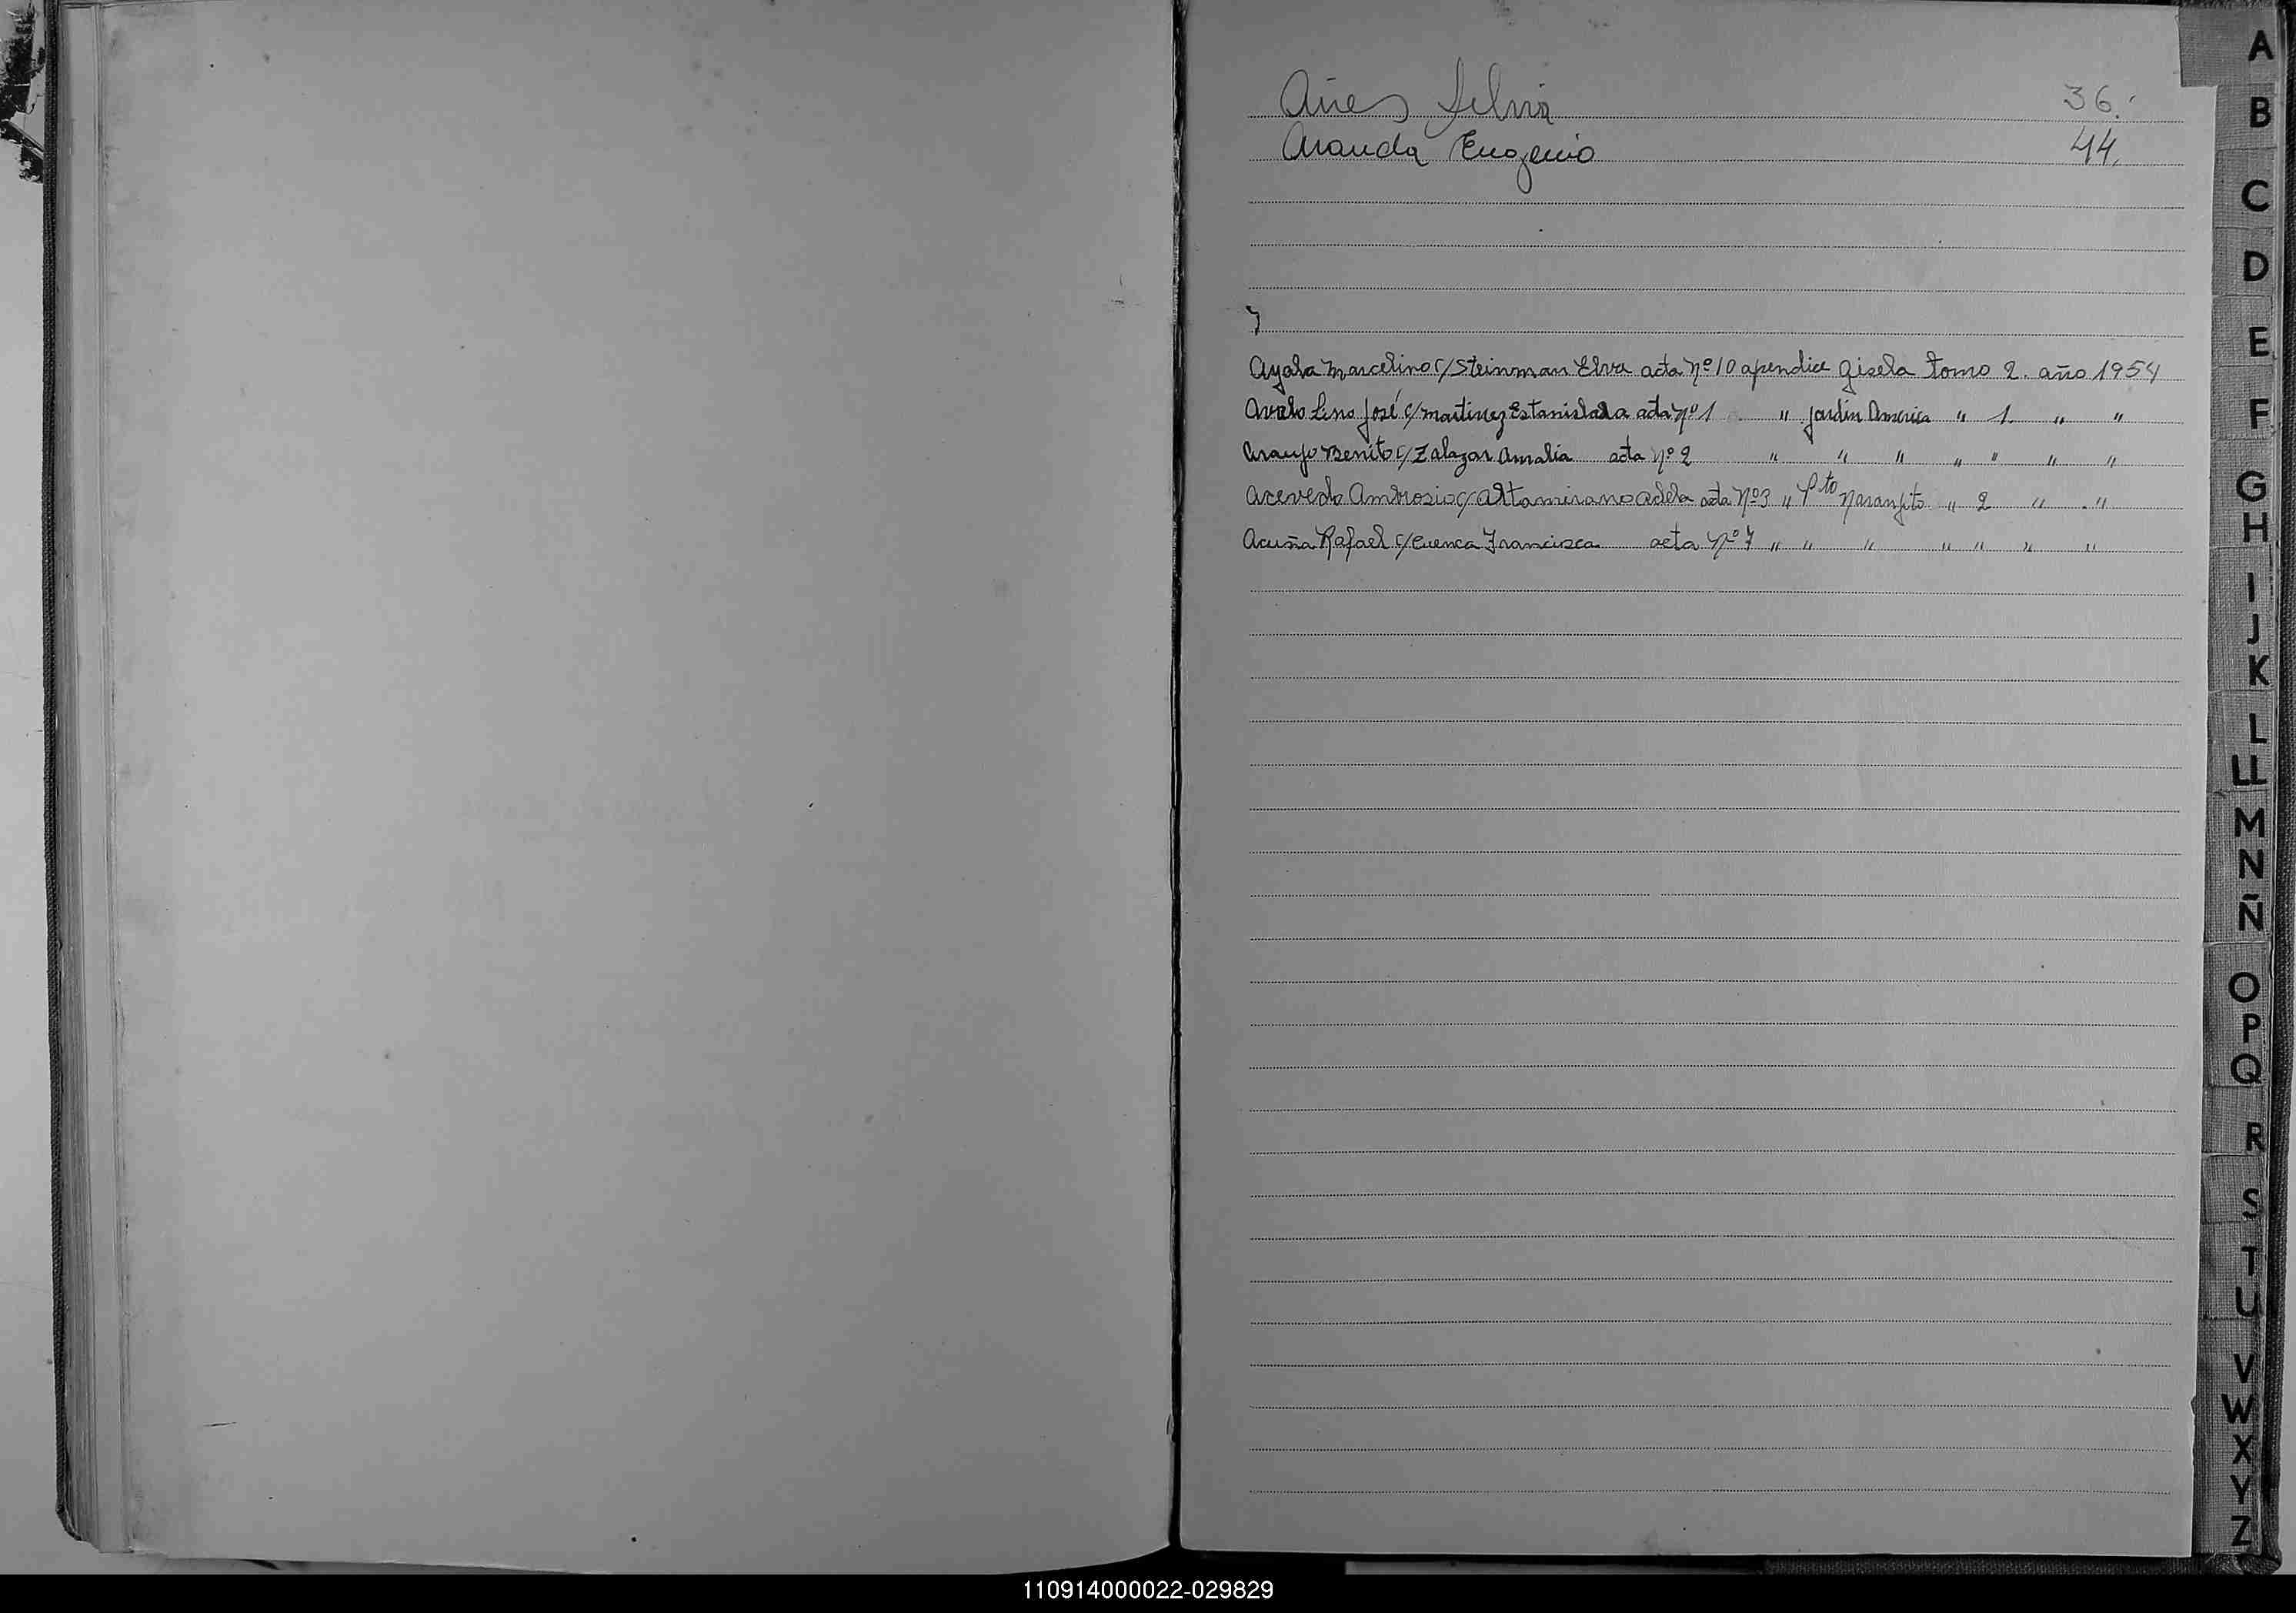 Aires Silvia 36.
Aranda Eugenio 44.
Ayala Marcelino c/ Steinman Elva acta nº 10 apendice Gisela tomo 2. año 1954
Avalo Lino José c/ Martinez Estanislada acta nº 1 " Jardin America " 1. " "
Araujo Benito c/ Zalazar Amalia acta nº 2 " " " " " " "
Acevedo Ambrosio c/ Altamirano Adela acta nº 3 " Pto Naranjito " 2 " "
Acuña Rafael c/ Cuenca Francisca acta nº 7 " " " " " " "
A
B
C
D
E
F
G
H
I
J
K
L
LL
M
N
Ñ
O
P
Q
R
S
T
U
V
W
X
Y
Z
110914000022-029829